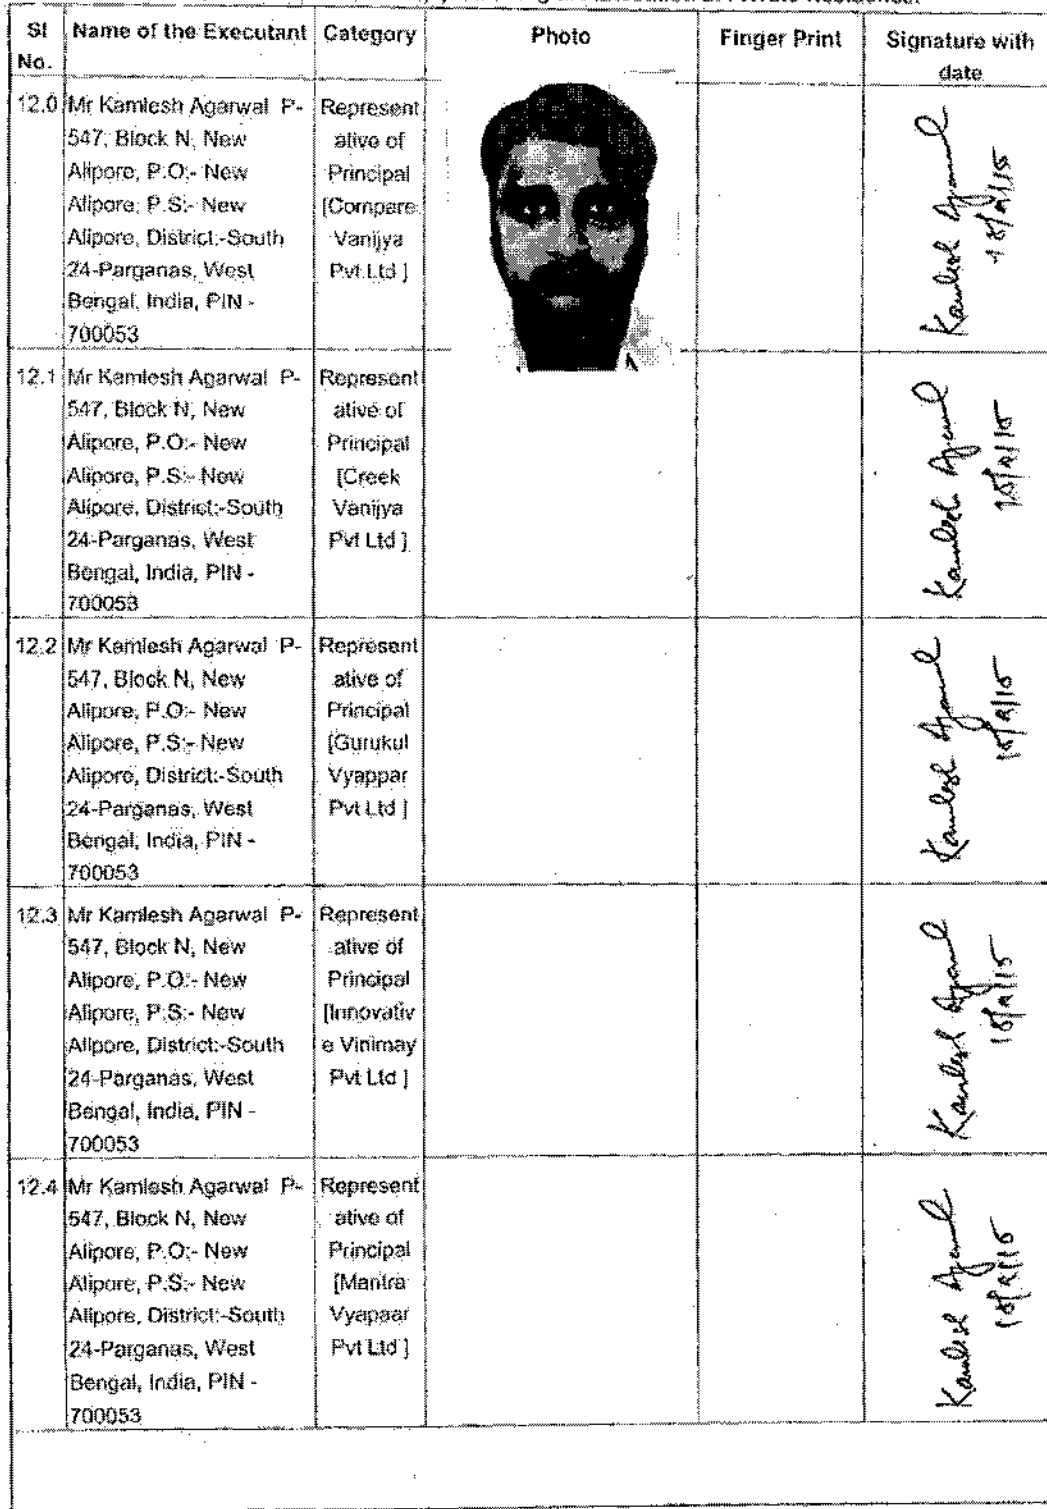 Private Residence.
Sl No.
Name of the Executant
Category
Photo
Finger Print
Signature with date
12.0
Mr Kamlesh Agarwal P-
547, Block N, New
Alipore, P.O:- New
Alipore, P.S:- New
Alipore, District:-South
24-Parganas, West
Bengal, India, PIN -
700053
Represent
ative of
Principal
[Compare
Vanijya
Pvt Ltd ]
Kamlesh Agarwal
12.1
Mr Kamlesh Agarwal P-
547, Block N, New
Alipore, P.O:- New
Alipore, P.S:- New
Alipore, District:-South
24-Parganas, West
Bengal, India, PIN -
700053
Represent
ative of
Principal
[Creek
Vanijya
Pvt Ltd ]
Kamlesh Agarwal
12.2
Mr Kamlesh Agarwal P-
547, Block N, New
Alipore, P.O:- New
Alipore, P.S:- New
Alipore, District:-South
24-Parganas, West
Bengal, India, PIN -
700053
Represent
ative of
Principal
[Gurukul
Vyappar
Pvt Ltd ]
Kamlesh Agarwal
12.3
Mr Kamlesh Agarwal P-
547, Block N, New
Alipore, P.O:- New
Alipore, P.S:- New
Alipore, District:-South
24-Parganas, West
Bengal, India, PIN -
700053
Represent
ative of
Principal
[Innovativ
e Vinimay
Pvt Ltd ]
Kamlesh Agarwal
12.4
Mr Kamlesh Agarwal P-
547, Block N, New
Alipore, P.O:- New
Alipore, P.S:- New
Alipore, District:-South
24-Parganas, West
Bengal, India, PIN -
700053
Represent
ative of
Principal
[Mantra
Vyapaar
Pvt Ltd ]
Kamlesh Agarwal